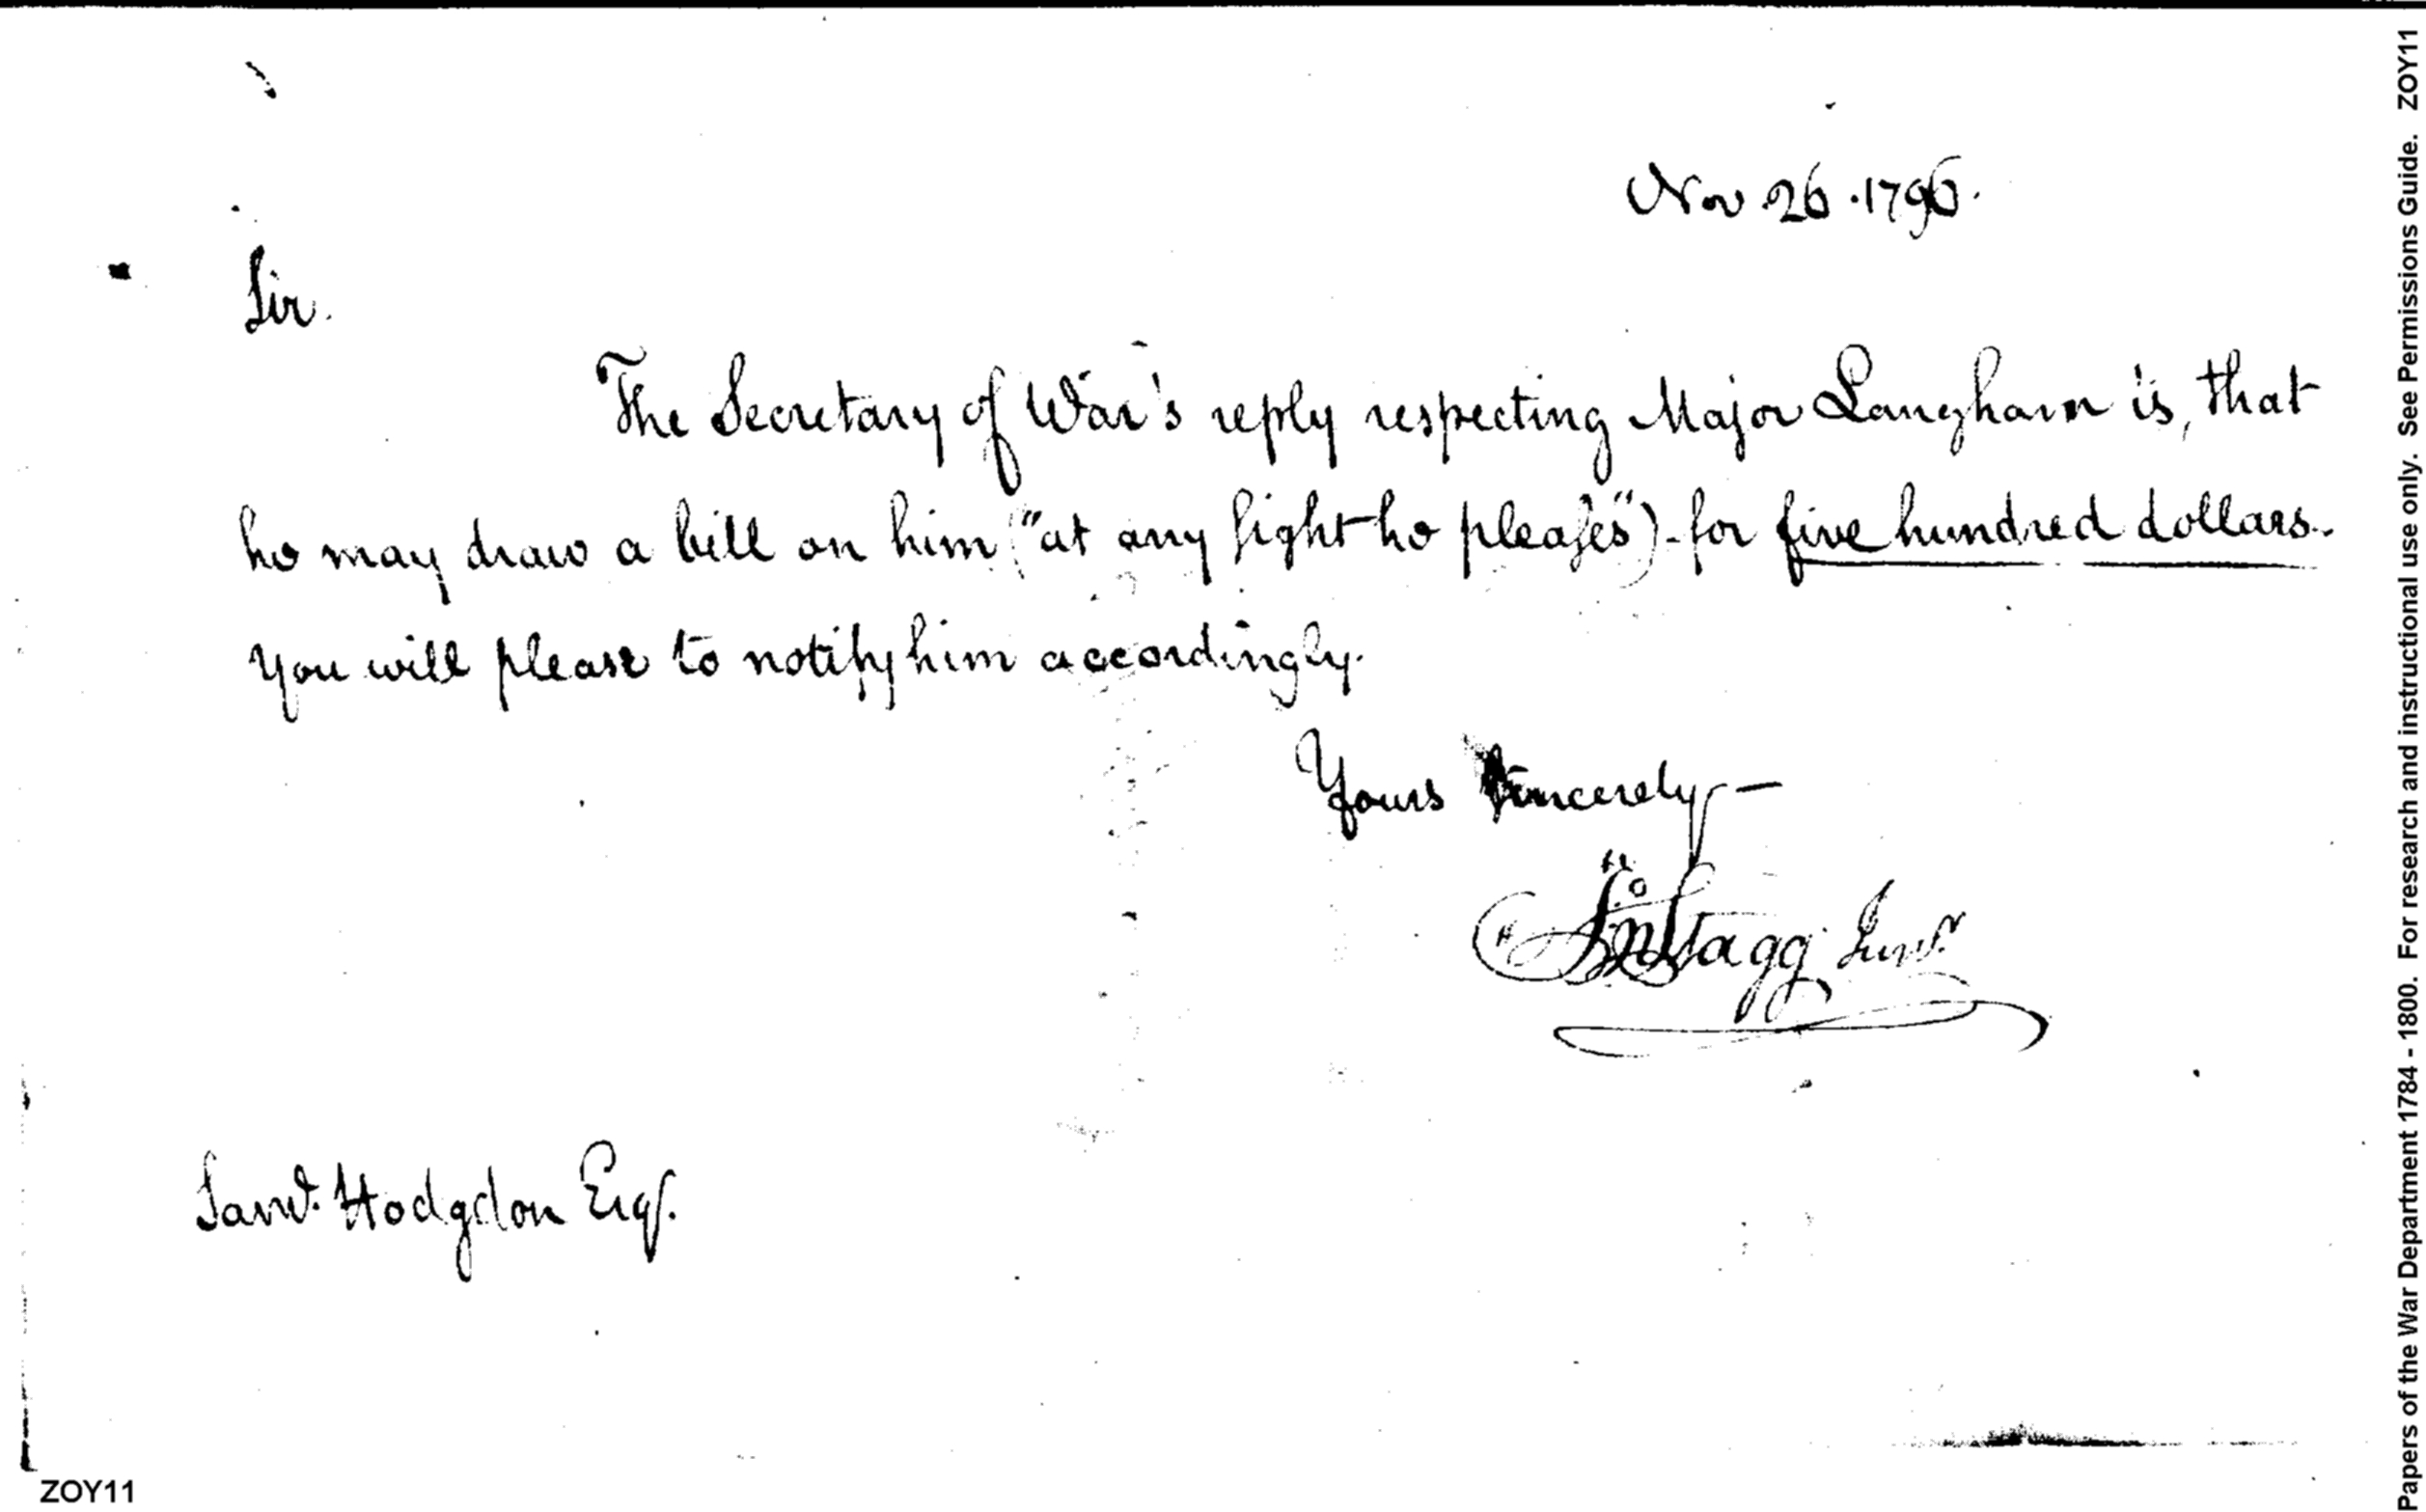 Nov 26. 1796.
Sir.
The Secretary of War's reply respecting Major Langham is, that
he may draw a bill on him ("at any sight he pleases") for five hundred dollars.
You will please to notify him accordingly.
Yours Sincerely —
Jno Stagg Junr.
Saml. Hodgdon Esqr.
ZOY11
Papers of the War Department 1784 - 1800. For research and instructional use only. See Permissions Guide. ZOY11